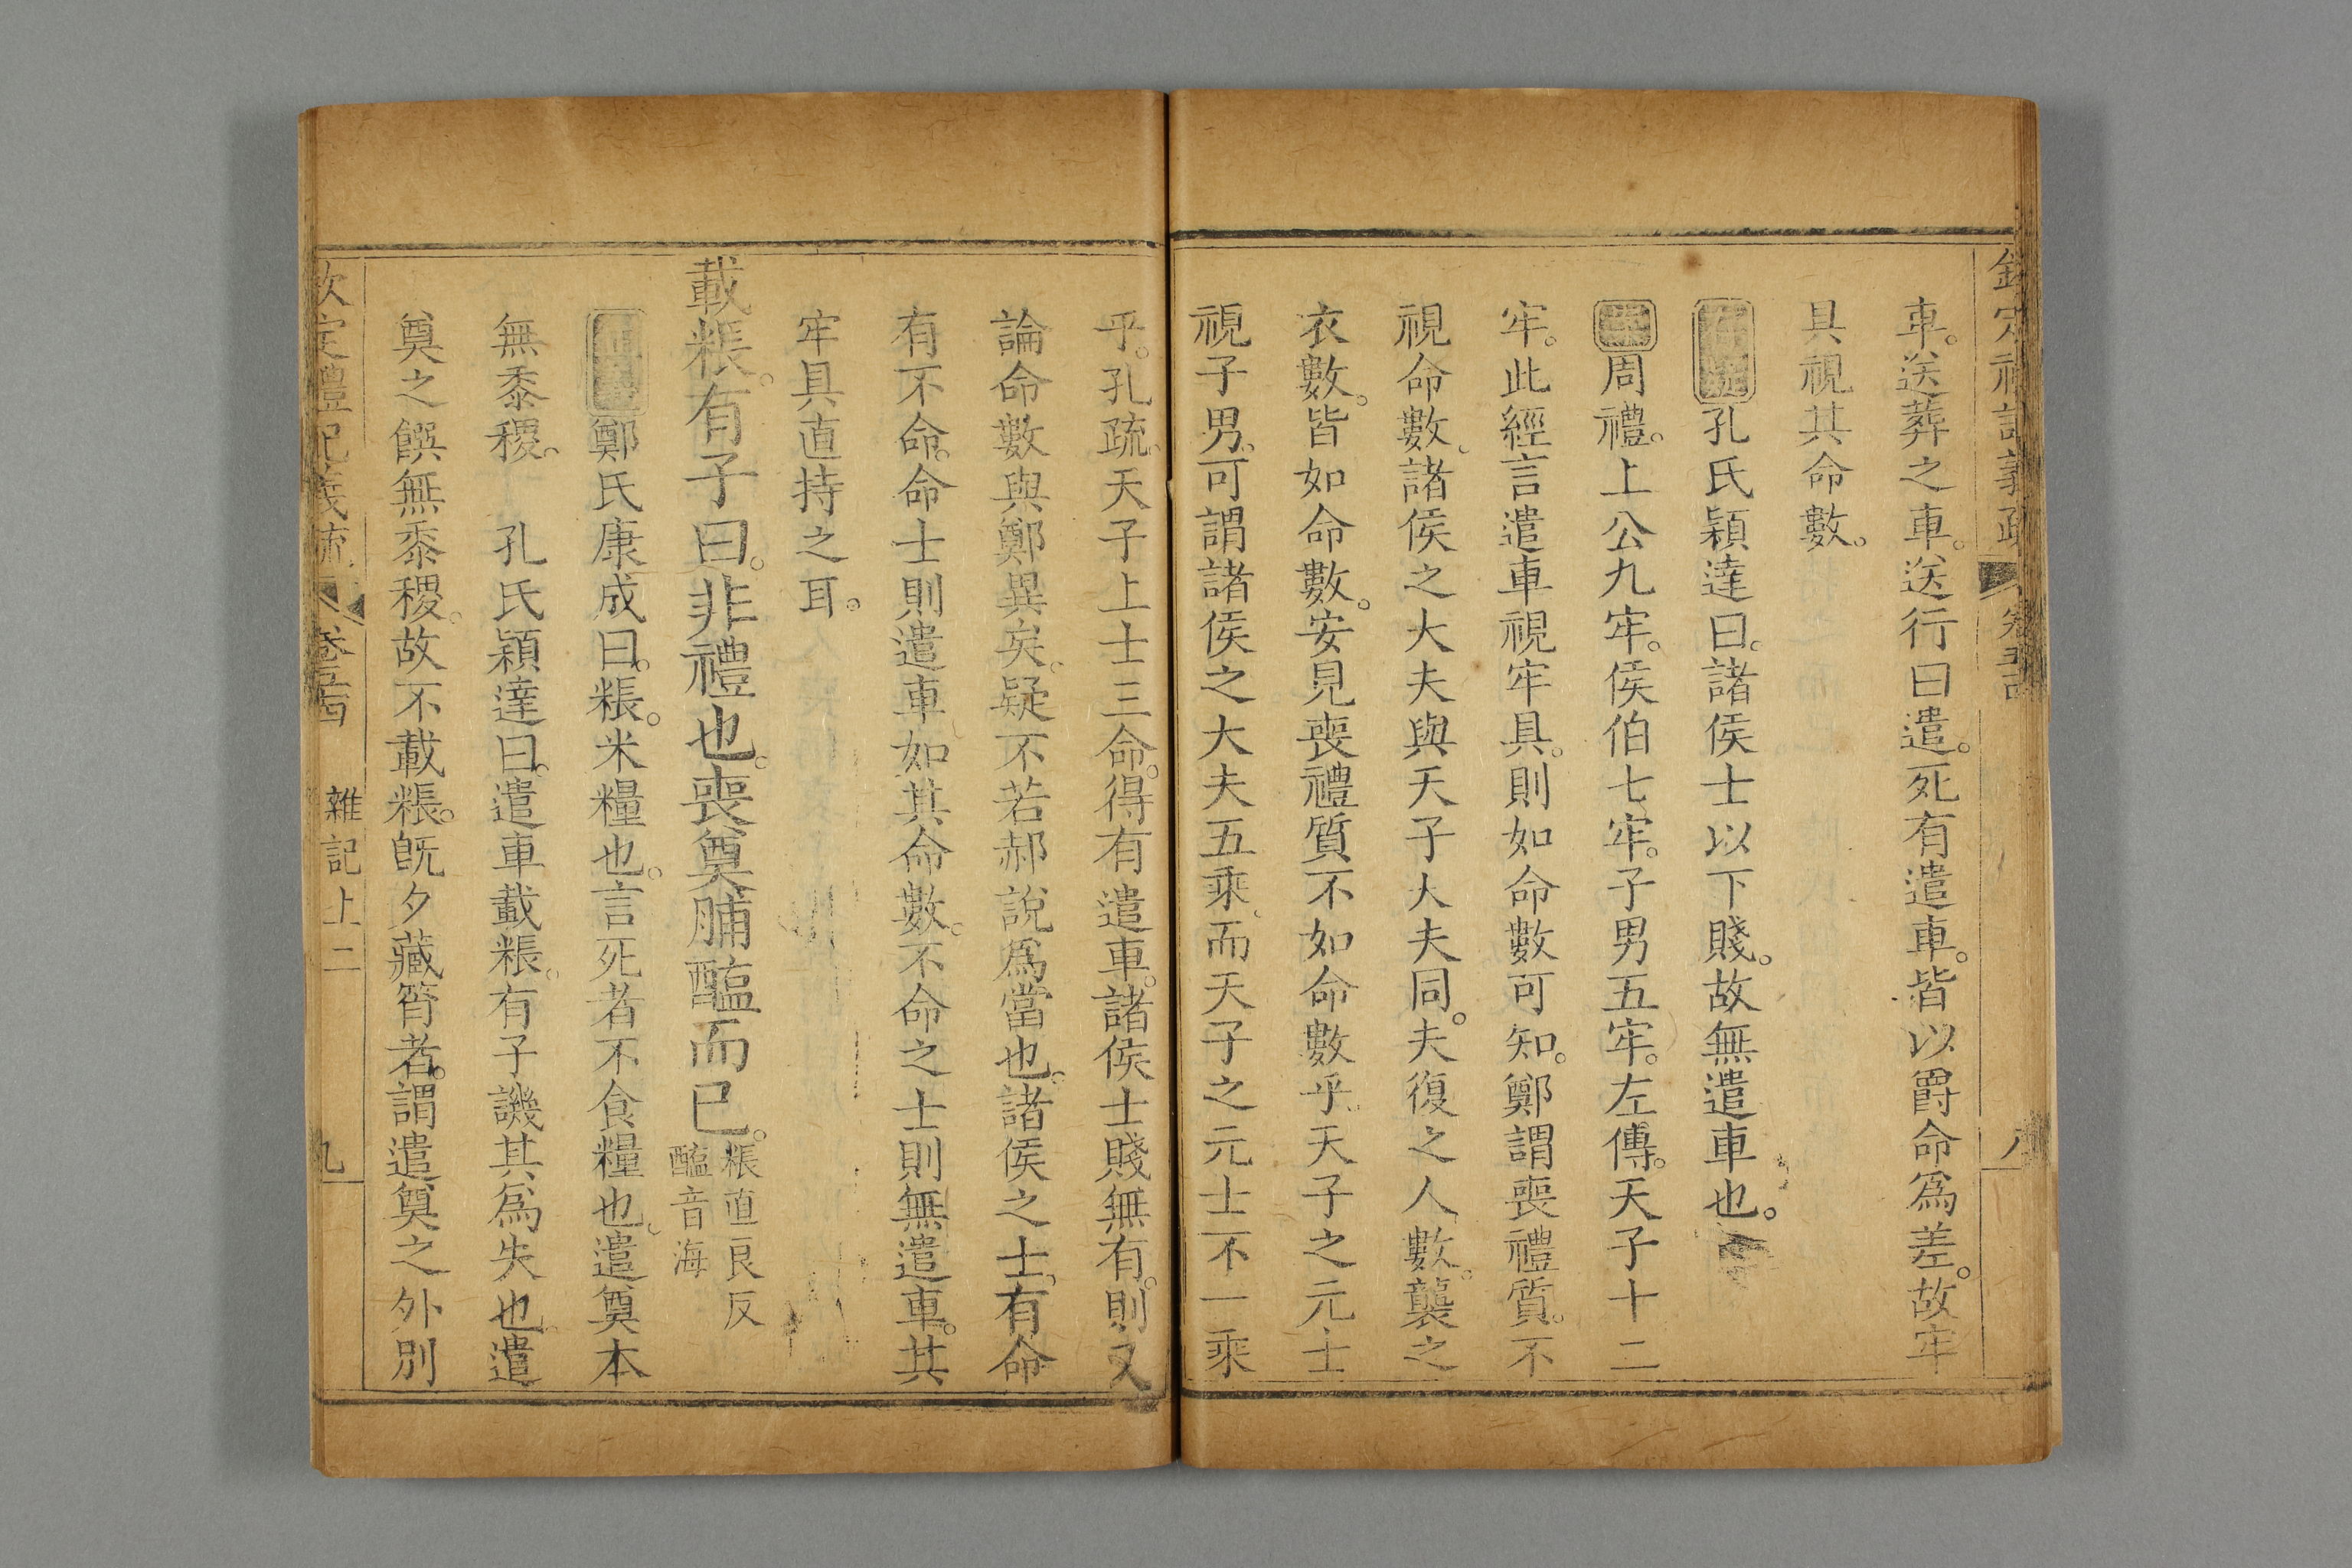 車。送葬之車。送行曰遣。死有遣車。皆以爵命爲差。故牢
具視其命數。
孔氏穎達曰。諸侯士以下賤。故無遣車也。
周禮。上公九牢。侯伯七牢。子男五牢。左傳。天子十二
牢。此經言遣車視牢具。則如命數可知。鄭謂喪禮質。不
視命數、諸侯之大夫與天子大夫同。夫復之人數。襲之
衣數。皆如命數。安見喪禮質不如命數乎。天子之元士
視子男。可謂諸侯之大夫五乘、而天子之元士不一乘
乎。孔疏。天子上士三命。得有遣車。諸侯士賤無有。則又
論命數與鄭異矣。疑不若郝說爲當也。諸侯之士。有命
有不命。命士則遣車如其命數。不命之士則無遣車。其
牢具直持之耳。
載粻。有子曰。非禮也。喪奠脯醢而已。粻直良反
醢音海
鄭氏康成曰。粻。米糧也。言死者不食糧也。遣奠本
無黍稷。 孔氏穎達曰。遣車載粻。有子譏其爲失也。遣
奠之饌無黍稷。故不載粻。旣夕藏筲者。謂遣奠之外別
欽定禮記義疏 雜記上二 九